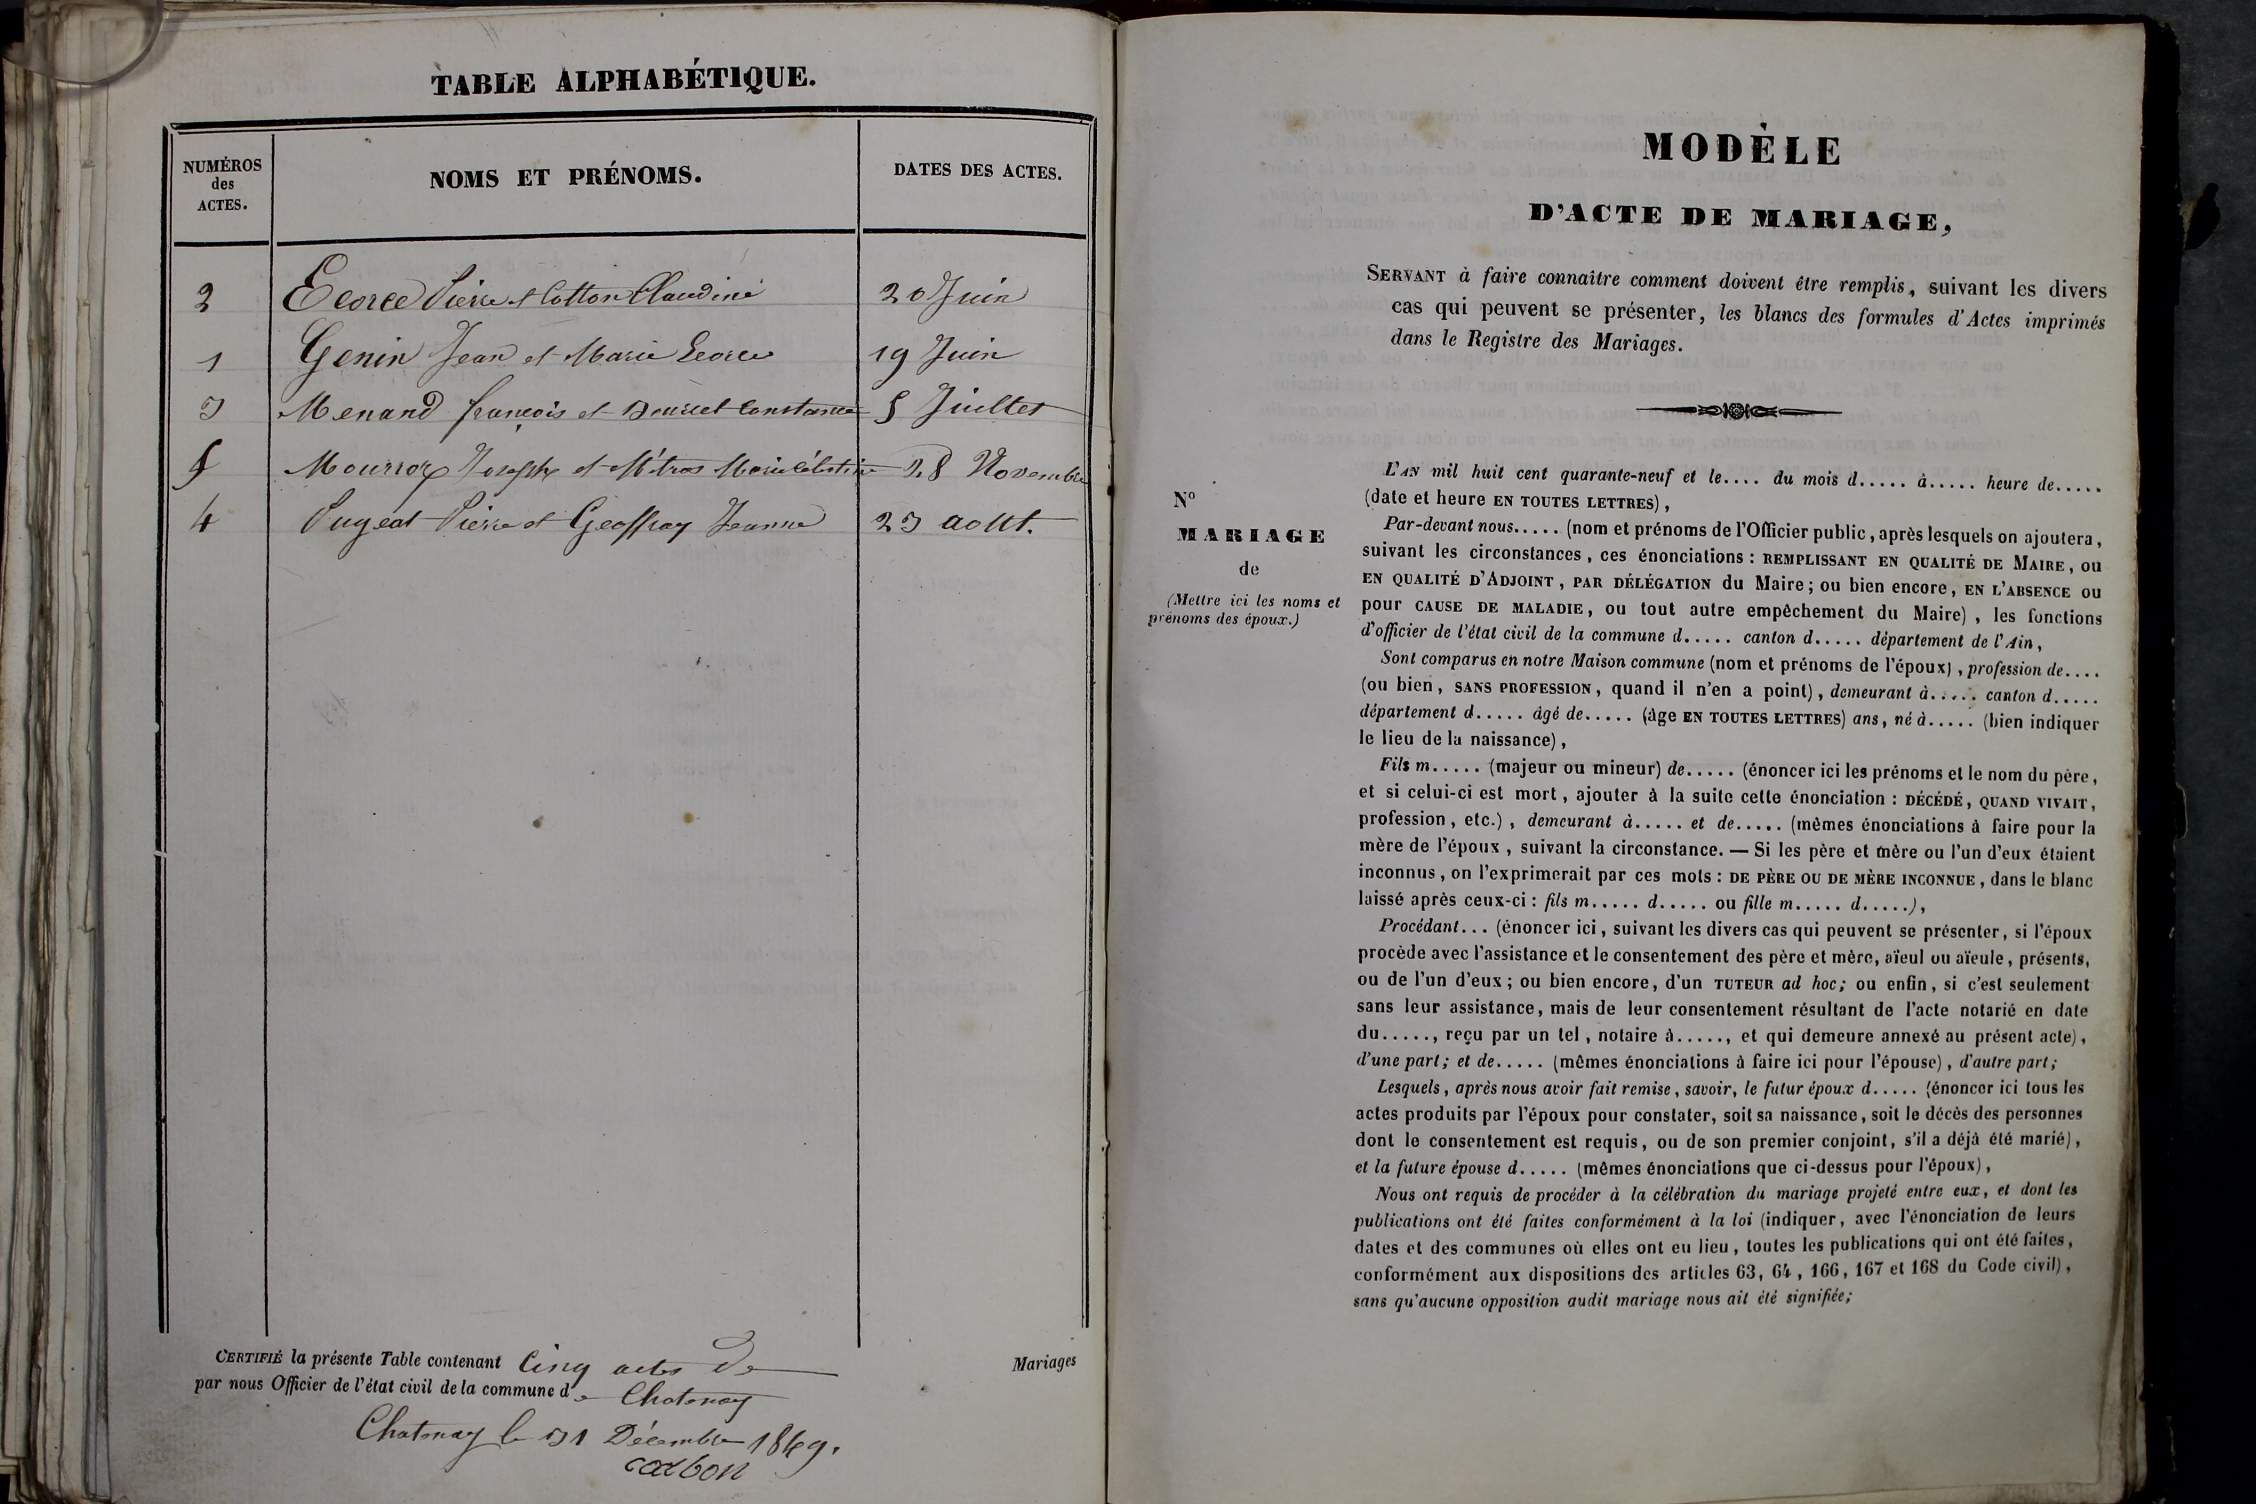 TABLE ALPHABÉTIQUE.
NUMÉROS des ACTES.
NOMS ET PRÉNOMS.
DATES DES ACTES.
2 Ecorce Pierre et Cotton Claudine 20 Juin
1 Genin Jean et Marie Ecorce 19 Juin
3 Menand françois et Douvret Constance 5 Juillet
5 Mourroz Joseph et Métras Marie Célestine 28 Novembre
4 Pugeat Pierre et Geoffray Jeanne 23 aout.
CERTIFIÉ la présente Table contenant Cinq actes de Mariages
par nous Officier de l'état civil de la commune de Chatenay
Chatenay le 31 Décembre 1849.
carbon
MODÈLE
D'ACTE DE MARIAGE,
SERVANT à faire connaître comment doivent être remplis, suivant les divers
cas qui peuvent se présenter, les blancs des formules d'Actes imprimés
dans le Registre des Mariages.
N°
MARIAGE
de
(Mettre ici les noms et
prénoms des époux.)
L'AN mil huit cent quarante-neuf et le.... du mois d..... à..... heure de.....
(date et heure EN TOUTES LETTRES),
Par-devant nous..... (nom et prénoms de l'Officier public, après lesquels on ajoutera,
suivant les circonstances, ces énonciations : REMPLISSANT EN QUALITÉ DE MAIRE, ou
EN QUALITÉ D'ADJOINT, PAR DÉLÉGATION du Maire; ou bien encore, EN L'ABSENCE ou
pour CAUSE DE MALADIE, ou tout autre empêchement du Maire), les fonctions
d'officier de l'état civil de la commune d..... canton d..... département de l'Ain,
Sont comparus en notre Maison commune (nom et prénoms de l'époux), profession de....
(ou bien, SANS PROFESSION, quand il n'en a point), demeurant à..... canton d.....
département d..... âgé de..... (âge EN TOUTES LETTRES) ans, né à..... (bien indiquer
le lieu de la naissance),
Fils m..... (majeur ou mineur) de..... (énoncer ici les prénoms et le nom du père,
et si celui-ci est mort, ajouter à la suite cette énonciation : DÉCÉDÉ, QUAND VIVAIT,
profession, etc.), demeurant à..... et de..... (mêmes énonciations à faire pour la
mère de l'époux, suivant la circonstance. — Si les père et mère ou l'un d'eux étaient
inconnus, on l'exprimerait par ces mots : DE PÈRE OU DE MÈRE INCONNUE, dans le blanc
laissé après ceux-ci : fils m..... d..... ou fille m..... d.....),
Procédant... (énoncer ici, suivant les divers cas qui peuvent se présenter, si l'époux
procède avec l'assistance et le consentement des père et mère, aïeul ou aïeule, présents,
ou de l'un d'eux; ou bien encore, d'un TUTEUR ad hoc; ou enfin, si c'est seulement
sans leur assistance, mais de leur consentement résultant de l'acte notarié en date
du....., reçu par un tel, notaire à....., et qui demeure annexé au présent acte),
d'une part; et de..... (mêmes énonciations à faire ici pour l'épouse), d'autre part;
Lesquels, après nous avoir fait remise, savoir, le futur époux d..... (énoncer ici tous les
actes produits par l'époux pour constater, soit sa naissance, soit le décès des personnes
dont le consentement est requis, ou de son premier conjoint, s'il a déjà été marié),
et la future épouse d..... (mêmes énonciations que ci-dessus pour l'époux),
Nous ont requis de procéder à la célébration du mariage projeté entre eux, et dont les
publications ont été faites conformément à la loi (indiquer, avec l'énonciation de leurs
dates et des communes où elles ont eu lieu, toutes les publications qui ont été faites,
conformément aux dispositions des articles 63, 64, 166, 167 et 168 du Code civil),
sans qu'aucune opposition audit mariage nous ait été signifiée;